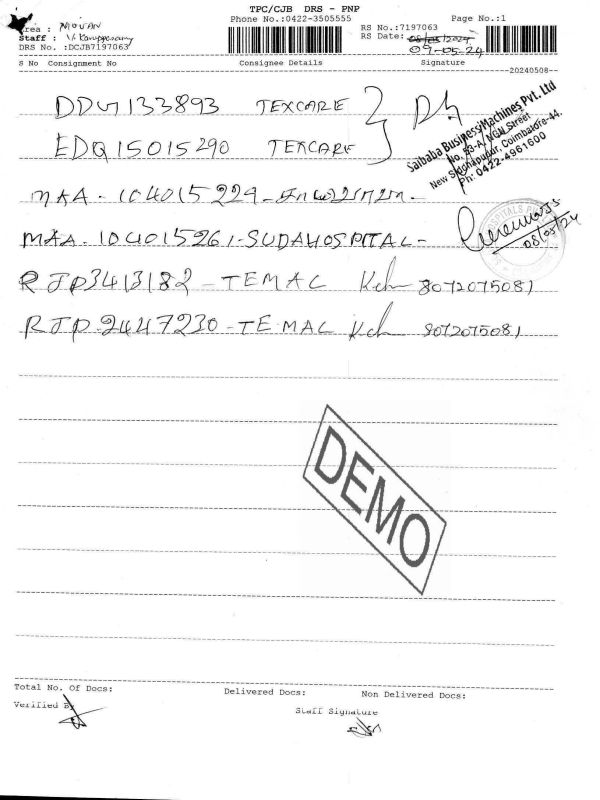 TPC/CJB DRS - PNP
Phone No.:0422-3505555
Page No.:1
Area : MOHAN
Staff : V. Karuppasamy
DRS No. :DCJB7197063
RS No.:7197063
RS Date: 08/05/2024
09-05-24
S No Consignment No Consignee Details Signature
20240508
DDG133893 TEXCARE
EDQ15015290 TEXCARE
Saibaba Business Machines Pvt. Ltd
No. 53-A, NGN Street
New Siddhapudur, Coimbatore-44.
Ph: 0422-4961600
MAA - 104015229 -
MAA - 104015261 - SUDAHOSPITAL -
08/05/24
RJP3413182 - TEMAC 8072075081
RJP 2447230 - TEMAC 8072075081
DEMO
Total No. Of Docs: Delivered Docs: Non Delivered Docs:
Verified By
Staff Signature